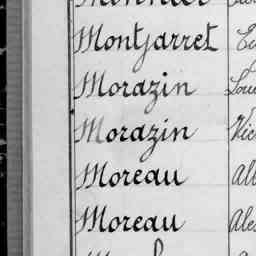 Montjarret
Morazin
Morazin
Moreau All
Moreau Ale